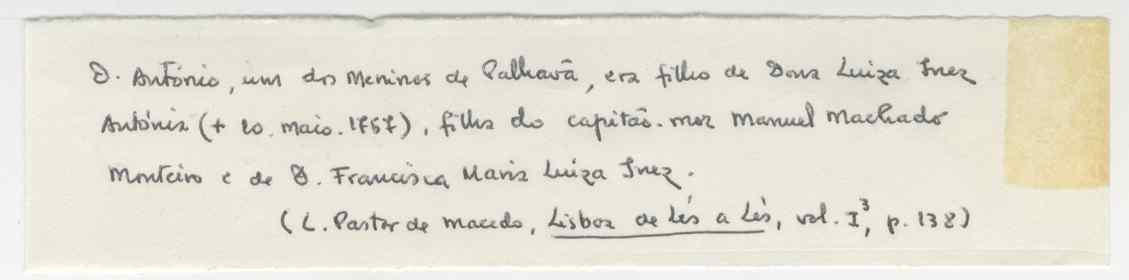 D. António, um dos Meninos de Palhavã, era filho de Dona Luiza Inez
Antónia (+ 20. maio. 1757), filha do capitão-mor Manuel Machado
Monteiro e de D. Francisca Maria Luiza Inez.
(L. Pastor de Macedo, Lisboa de Lés a Lés, vol. I³, p. 138)